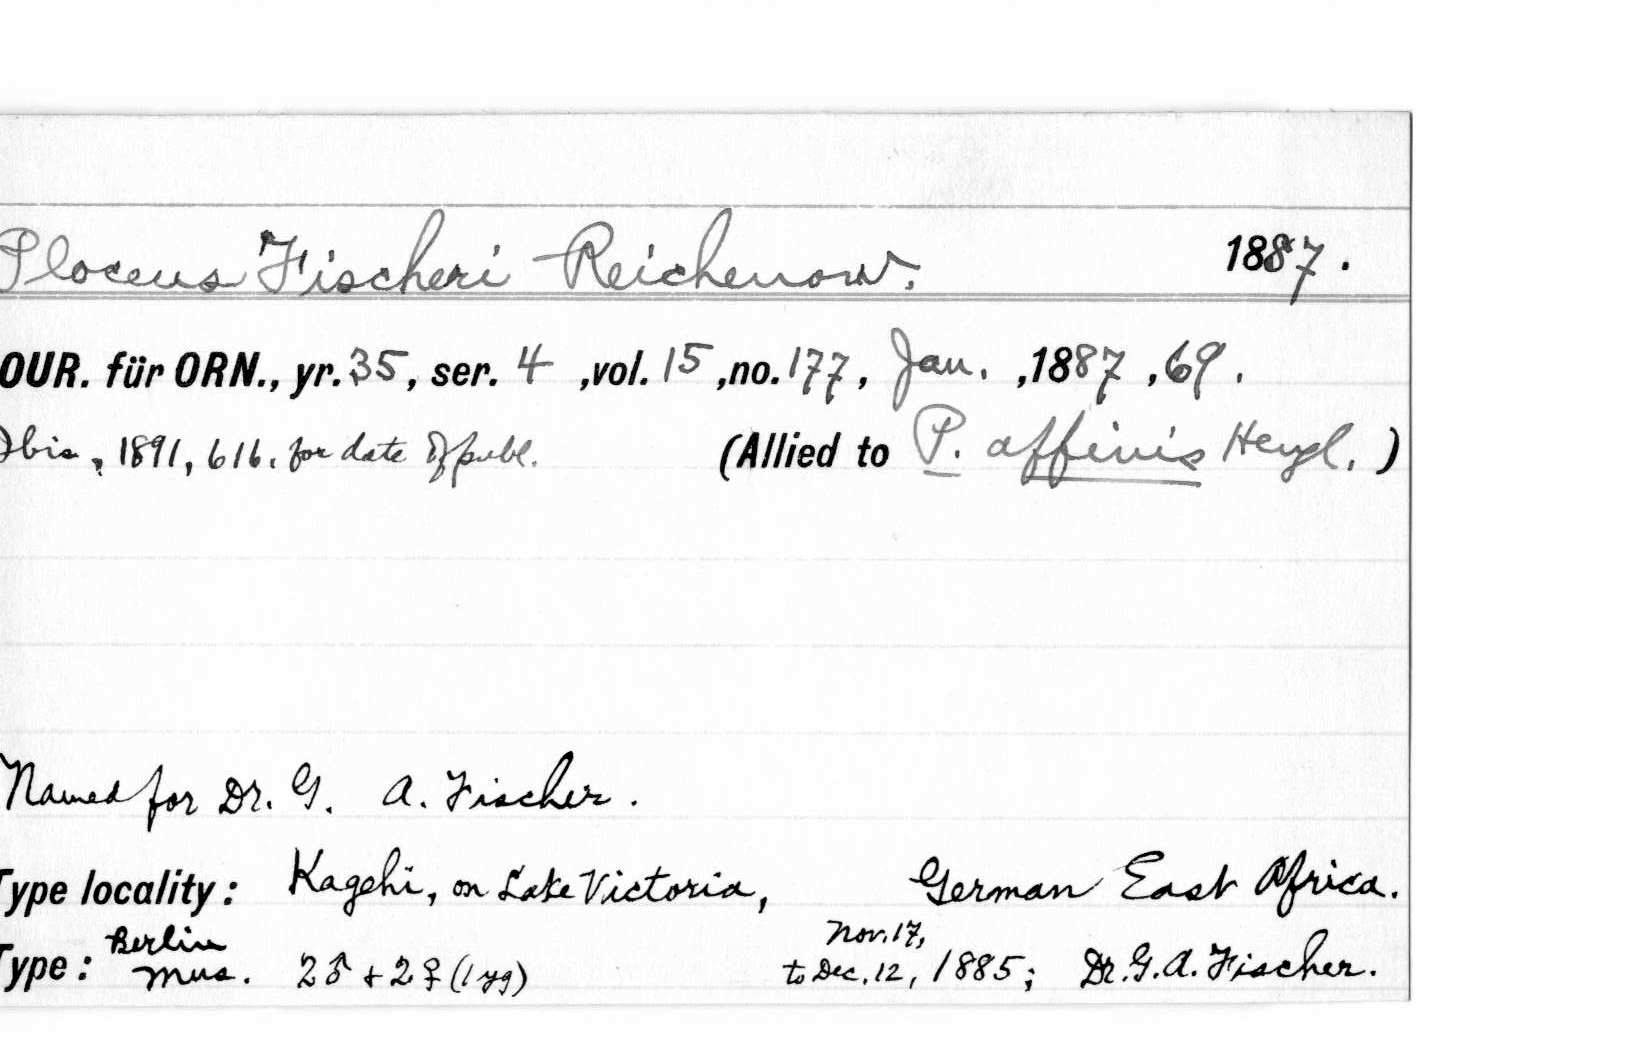 Ploceus Fischeri Reichenow. 1887.
OUR. für ORN., yr. 35, ser. 4 ,vol. 15 ,no. 177, Jan. ,1887 ,69.
Ibis, 1891, 616. for date of publ. (Allied to P. affinis Heugl. )
Named for Dr. G. A. Fischer.
Type locality: Kagehi, on Lake Victoria, German East Africa.
Type: Berlin Mus. 2♂ + 2♀ (1 yg) Nov. 17, to Dec. 12, 1885; Dr. G. A. Fischer.